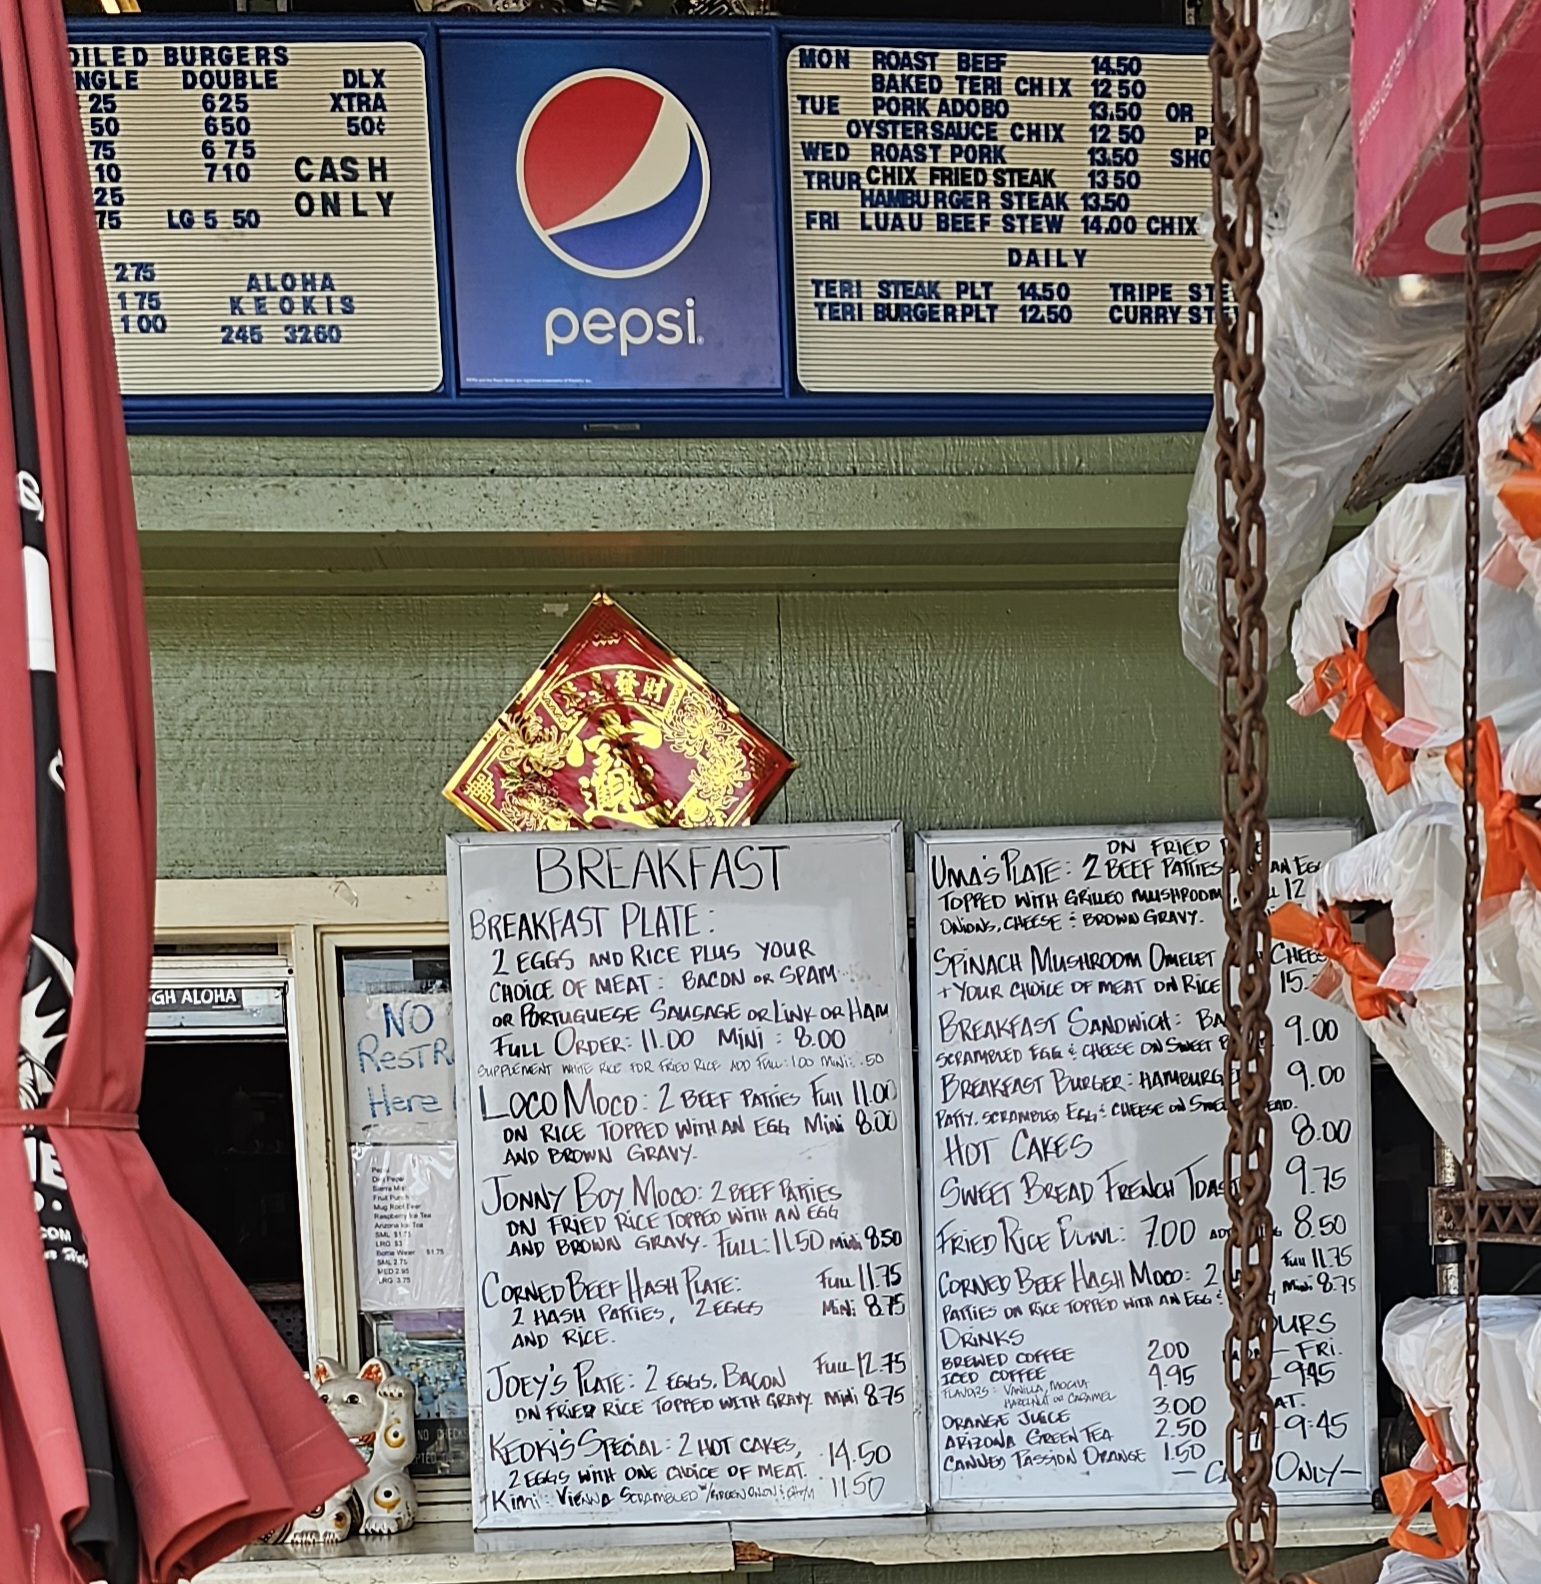 OILED BURGERS
NGLE DOUBLE DLX
25 625 XTRA
50 650 50¢
75 675
10 710 CASH
25 ONLY
75 LG 5 50
275
1.75
1 00
ALOHA
KEOKIS
245 3260
pepsi
MON ROAST BEEF 14.50
BAKED TERI CHIX 12 50
TUE PORK ADOBO 13.50 OR
OYSTER SAUCE CHIX 12 50 P
WED ROAST PORK 13.50 SHO
TRUR CHIX FRIED STEAK 13 50
HAMBURGER STEAK 13.50
FRI LUAU BEEF STEW 14.00 CHIX
DAILY
TERI STEAK PLT 14.50 TRIPE STE
TERI BURGER PLT 12.50 CURRY STE
發財
GH ALOHA
NO
RestR
Here
Pepsi
Diet Pepsi
Sierra Mist
Fruit Punch
Mug Root Beer
Raspberry Ice Tea
Arizona Ice Tea
SML $1.75
LRG $3
Bottle Water $1.75
SML 2.75
MED 2.95
LRG 3.75
NO CHECK
BREAKFAST
BREAKFAST PLATE:
2 EGGS AND RICE PLUS YOUR
CHOICE OF MEAT: BACON OR SPAM
OR PORTUGUESE SAUSAGE OR LINK OR HAM
FULL ORDER: 11.00 MINI: 8.00
SUPPLEMENT WHITE RICE FOR FRIED RICE ADD FULL: 1.00 MINI: .50
LOCO MOCO: 2 BEEF PATTIES FULL 11.00
ON RICE TOPPED WITH AN EGG MINI 8.00
AND BROWN GRAVY.
JONNY BOY MOCO: 2 BEEF PATTIES
ON FRIED RICE TOPPED WITH AN EGG
AND BROWN GRAVY. FULL: 11.50 MINI 8.50
CORNED BEEF HASH PLATE: FULL 11.75
2 HASH PATTIES, 2 EGGS MINI 8.75
AND RICE.
JOEY'S PLATE: 2 EGGS, BACON FULL 12.75
ON FRIED RICE TOPPED WITH GRAVY MINI 8.75
KEOKI'S SPECIAL: 2 HOT CAKES, 14.50
2 EGGS WITH ONE CHOICE OF MEAT.
KIMI: VIENNA SCRAMBLED W/GREEN ONION 11.50
ON FRIED
UMA'S PLATE: 2 BEEF PATTIES AN EG
TOPPED WITH GRILLED MUSHROOM 12
ONIONS, CHEESE & BROWN GRAVY.
SPINACH MUSHROOM OMELET CHEES
+ YOUR CHOICE OF MEAT ON RICE 15.
BREAKFAST SANDWICH: BA 9.00
SCRAMBLED EGG & CHEESE ON SWEET B
BREAKFAST BURGER: HAMBURGE 9.00
PATTY, SCRAMBLED EGG & CHEESE ON SWEE EAD.
HOT CAKES 8.00
SWEET BREAD FRENCH TOAST 9.75
FRIED RICE BOWL: 7.00 ADD 8.50
CORNED BEEF HASH MOCO: 2 FULL 11.75
PATTIES ON RICE TOPPED WITH AN EGG & MINI 8.75
DRINKS
BREWED COFFEE 2.00
ICED COFFEE 4.95
FLAVORS: VANILLA, MOCHA,
HAZELNUT OR CARAMEL
ORANGE JUICE 3.00
ARIZONA GREEN TEA 2.50
CANNED PASSION ORANGE 1.50
OURS
- FRI.
- 9:45
AT.
- 9:45
— C ONLY —
.COM